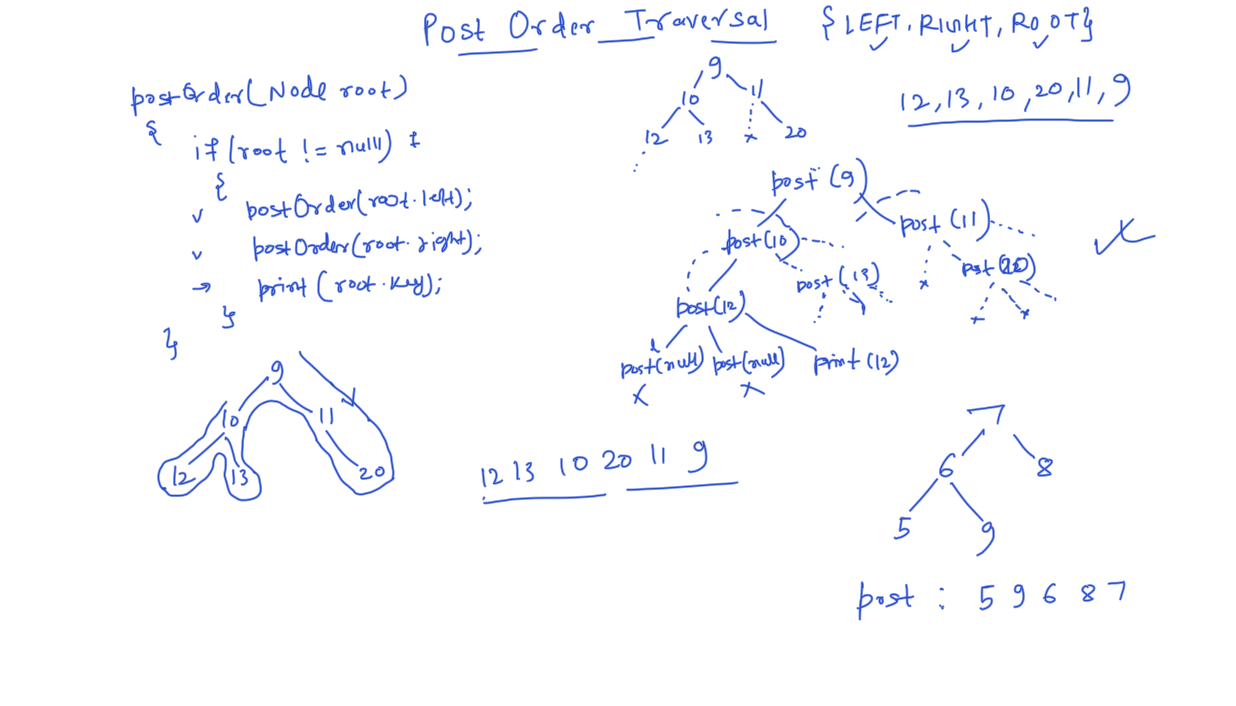 Post Order Traversal {LEFT, RIGHT, ROOT}
postOrder(Node root)
{
if(root != null)
{
postOrder(root.left);
postOrder(root.right);
print(root.key);
}
}
9
10 11
12 13 x 20
12, 13, 10, 20, 11, 9
post(9)
post(10) post(11)
post(12) post(13) post(20)
x x x
post(null) post(null) print(12)
x x
9
10 11
12 13 20
12 13 10 20 11 9
7
6 8
5 9
post : 5 9 6 8 7